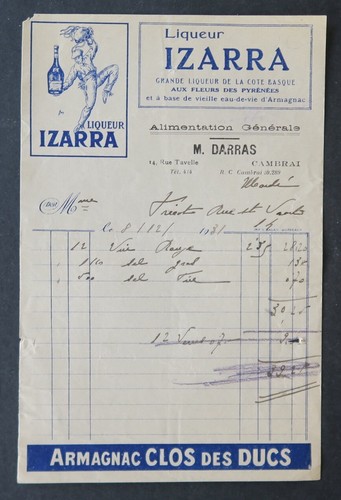 LIQUEUR
IZARRA
Liqueur
IZARRA
GRANDE LIQUEUR DE LA COTE BASQUE
AUX FLEURS DES PYRÉNÉES
et à base de vieille eau-de-vie d'Armagnac
Alimentation Générale
M. DARRAS
14, Rue Tavelle
CAMBRAI
Tél. 414
R. C. Cambrai 20.289
Doit Mme
Ce 8/12/ 1931
12 Vin Rouge 2 35 28 20
1 30
500 sel fin 0 70
30 20
12
ARMAGNAC CLOS DES DUCS